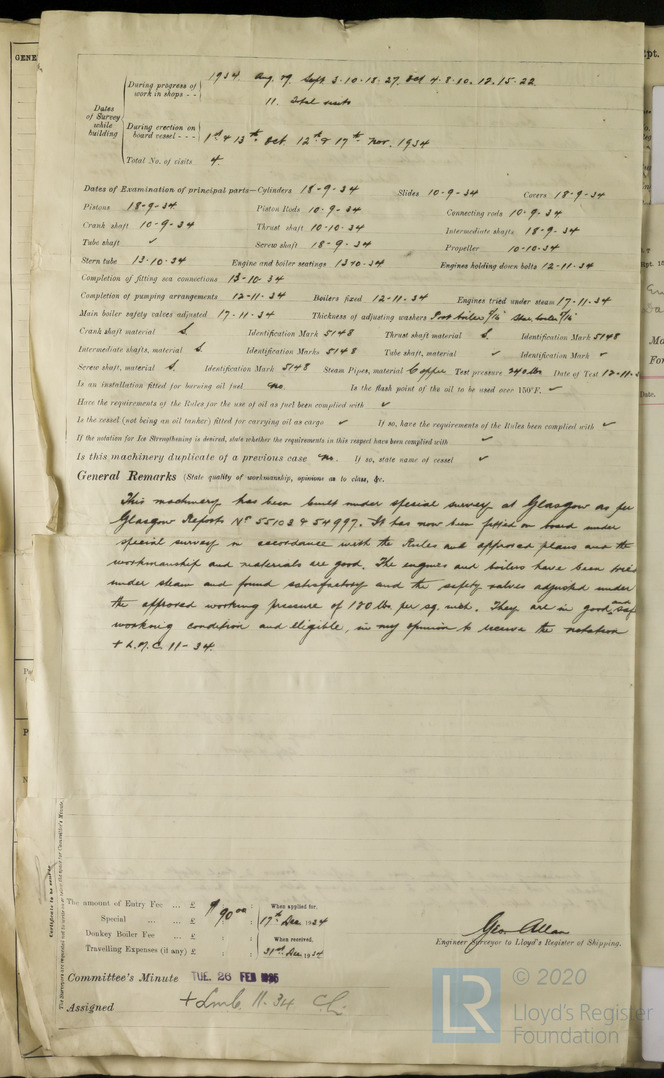 GENE
During progress of work in shops - - 1934 Aug. 29 Sept. 3. 10. 18. 27. Oct 4. 8. 10. 12. 15. 22
11. Total visits
Dates of Survey while building
During erection on board vessel - - - 1st & 13th Oct 12th & 17th Nov. 1934
Total No. of visits 4
Dates of Examination of principal parts—Cylinders 18-9-34 Slides 10-9-34 Covers 18-9-34
Pistons 18-9-34 Piston Rods 10-9-34 Connecting rods 10-9-34
Crank shaft 10-9-34 Thrust shaft 10-10-34 Intermediate shafts 18-9-34
Tube shaft ✓ Screw shaft 18-9-34 Propeller 10-10-34
Stern tube 13-10-34 Engine and boiler seatings 13-10-34 Engines holding down bolts 12-11-34
Completion of fitting sea connections 13-10-34
Completion of pumping arrangements 12-11-34 Boilers fixed 12-11-34 Engines tried under steam 17-11-34
Main boiler safety valves adjusted 17-11-34 Thickness of adjusting washers Port boiler Star boiler
Crank shaft material S. Identification Mark 5148 Thrust shaft material S. Identification Mark 5148
Intermediate shafts, material S. Identification Marks 5148 Tube shaft, material ✓ Identification Mark ✓
Screw shaft, material S. Identification Mark 5148 Steam Pipes, material Copper Test pressure 340 lbs Date of Test
Is an installation fitted for burning oil fuel no Is the flash point of the oil to be used over 150°F. ✓
Have the requirements of the Rules for the use of oil as fuel been complied with ✓
Is the vessel (not being an oil tanker) fitted for carrying oil as cargo ✓ If so, have the requirements of the Rules been complied with ✓
If the notation for Ice Strengthening is desired, state whether the requirements in this respect have been complied with ✓
Is this machinery duplicate of a previous case no. If so, state name of vessel ✓
General Remarks (State quality of workmanship, opinions as to class, &c.
This machinery has been built under special survey at Glasgow as per
Glasgow Reports No 55103 & 54997. It has now been fitted on board under
special survey in accordance with the Rules and approved plans and the
workmanship and materials are good. The engines and boilers have been tried
under steam and found satisfactory and the safety valves adjusted under
the approved working pressure of 180 lbs per sq. inch. They are in good and safe
working condition and eligible, in my opinion to receive the notation
+ L.M.C. 11-34.
Certificate to be sent to
The amount of Entry Fee ... £ : : When applied for,
Special ... ... £ 90 00 : 17th Dec 1934
Donkey Boiler Fee ... £ : : When received,
Travelling Expenses (if any) £ : : 31st Dec 1934
Geo. Allan
Engineer Surveyor to Lloyd's Register of Shipping.
Committee's Minute TUE. 26 FEB 1935
Assigned + Lmc. 11. 34 C.L.
LR © 2020
Lloyd's Register
Foundation